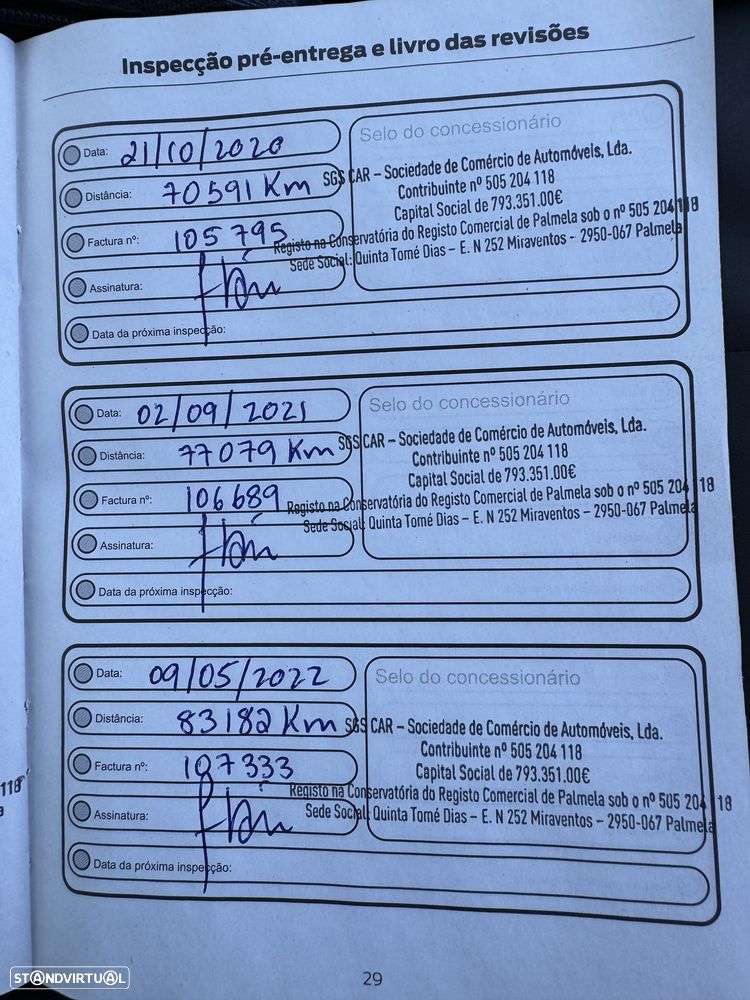 Inspecção pré-entrega e livro das revisões
Data: 21/10/2020
Distância: 70591 Km
Factura nº: 105 795
Assinatura:
Data da próxima inspecção:
Selo do concessionário
SGS CAR – Sociedade de Comércio de Automóveis, Lda.
Contribuinte nº 505 204 118
Capital Social de 793.351.00€
Registo na Conservatória do Registo Comercial de Palmela sob o nº 505 204 118
Sede Social: Quinta Tomé Dias – E. N 252 Miraventos – 2950-067 Palmela
Data: 02/09/2021
Distância: 77079 Km
Factura nº: 106689
Assinatura:
Data da próxima inspecção:
Selo do concessionário
SGS CAR – Sociedade de Comércio de Automóveis, Lda.
Contribuinte nº 505 204 118
Capital Social de 793.351.00€
Registo na Conservatória do Registo Comercial de Palmela sob o nº 505 204 118
Sede Social: Quinta Tomé Dias – E. N 252 Miraventos – 2950-067 Palmela
Data: 09/05/2022
Distância: 83182 Km
Factura nº: 107333
Assinatura:
Data da próxima inspecção:
Selo do concessionário
SGS CAR – Sociedade de Comércio de Automóveis, Lda.
Contribuinte nº 505 204 118
Capital Social de 793.351.00€
Registo na Conservatória do Registo Comercial de Palmela sob o nº 505 204 118
Sede Social: Quinta Tomé Dias – E. N 252 Miraventos – 2950-067 Palmela
118
a
29
STANDVIRTUAL